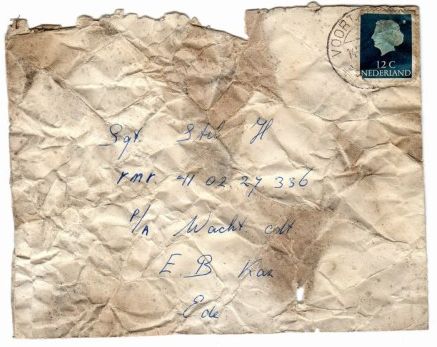 VOORT
12 C
NEDERLAND
Sgt. Stel H
rnr. 41 02 27 336
P/A Wacht cdt
E B Kaz
Ede